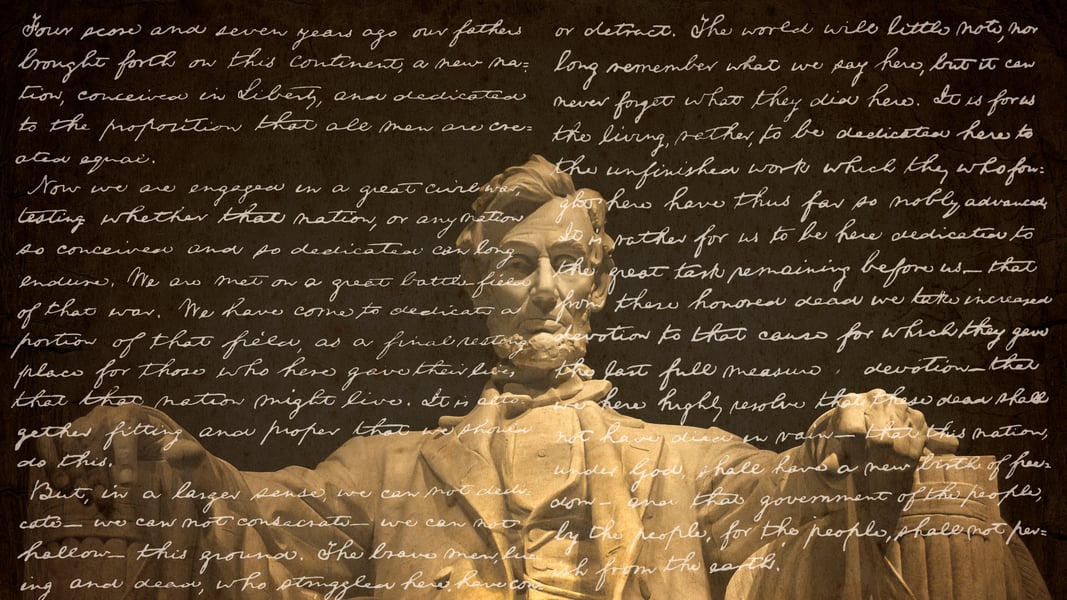 Four score and seven years ago our fathers
brought forth on this continent, a new na=
tion, conceived in Liberty, and dedicated
to the proposition that all men are cre=
ated equal.
Now we are engaged in a great civil war,
testing whether that nation, or any nation
so conceived and so dedicated can long
endure. We are met on a great battle-field
of that war. We have come to dedicate a
portion of that field, as a final resting
place for those who here gave their lives,
that that nation might live. It is alto=
gether fitting and proper that we should
do this.
But, in a larger sense, we can not dedi=
cate— we can not consecrate— we can not
hallow— this ground. The brave men, liv=
ing and dead, who struggled here, have con=
or detract. The world will little note, nor
long remember what we say here, but it can
never forget what they did here. It is for us
the living, rather, to be dedicated here to
the unfinished work which they who fou=
ght here have thus far so nobly advanced.
It is rather for us to be here dedicated to
the great task remaining before us— that
from these honored dead we take increased
devotion to that cause for which they gave
the last full measure devotion— that
we here highly resolve that these dead shall
not have died in vain— that this nation,
under God, shall have a new birth of free=
dom— and that government of the people,
by the people, for the people, shall not per=
ish from the earth.